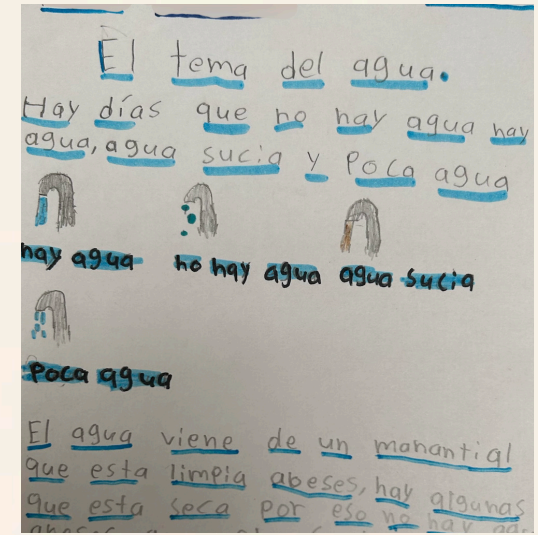 El tema del agua.
Hay días que no hay agua hay
agua, agua sucia y Poca agua
hay agua no hay agua agua sucia
Poca agua
El agua viene de un manantial
que esta limpia abeses, hay algunas
que esta seca por eso no hay